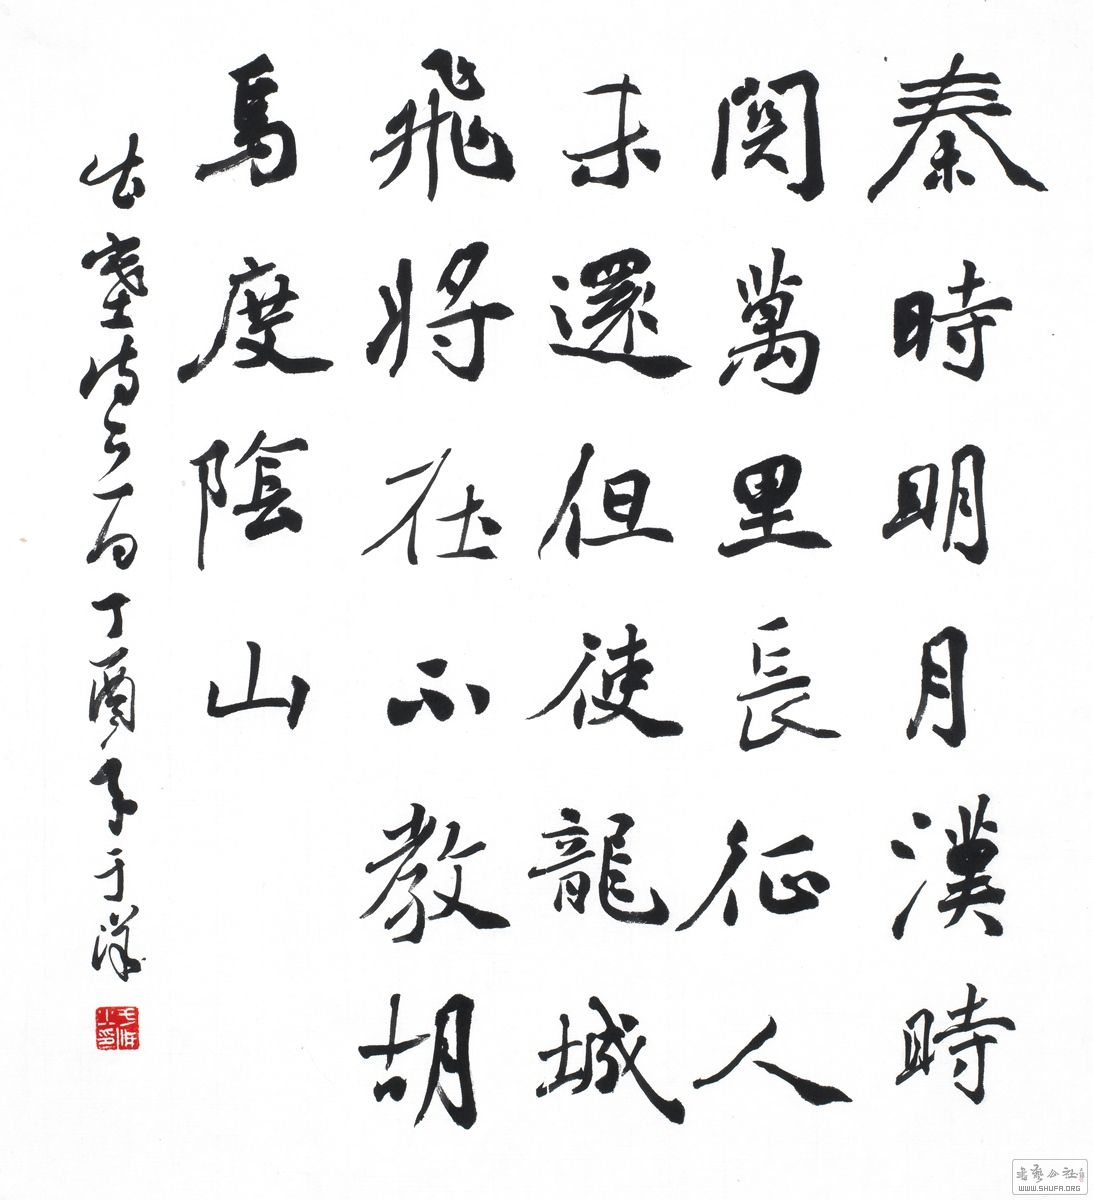 秦時明月漢時
関萬里長征人
未還但使龍城
飛將在不教胡
馬度陰山
出塞詩一首丁酉年于洋
WWW.SHUFA.ORG